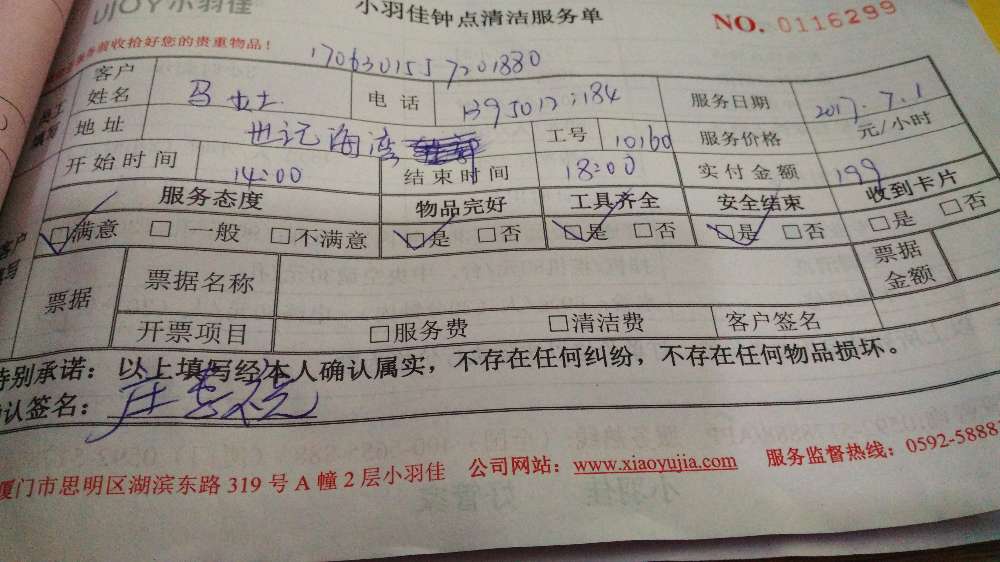 UJOY小羽佳 小羽佳钟点清洁服务单 NO. 0116299
收拾好您的贵重物品！
1706301557201880
客户姓名 马女士 电话 服务日期 2017.7.1
地址 世记海湾 工号 10160 服务价格 元/小时
开始时间 14:00 结束时间 18:00 实付金额 199
服务态度 物品完好 工具齐全 安全结束 收到卡片
□满意 □一般 □不满意 □是 □否 □是 □否 □是 □否 □是 □否
票据 票据名称 票据金额
开票项目 □服务费 □清洁费 客户签名
特别承诺：以上填写经本人确认属实，不存在任何纠纷，不存在任何物品损坏。
确认签名：
厦门市思明区湖滨东路 319 号 A 幢 2 层小羽佳 公司网站：www.xiaoyujia.com 服务监督热线：0592-5888